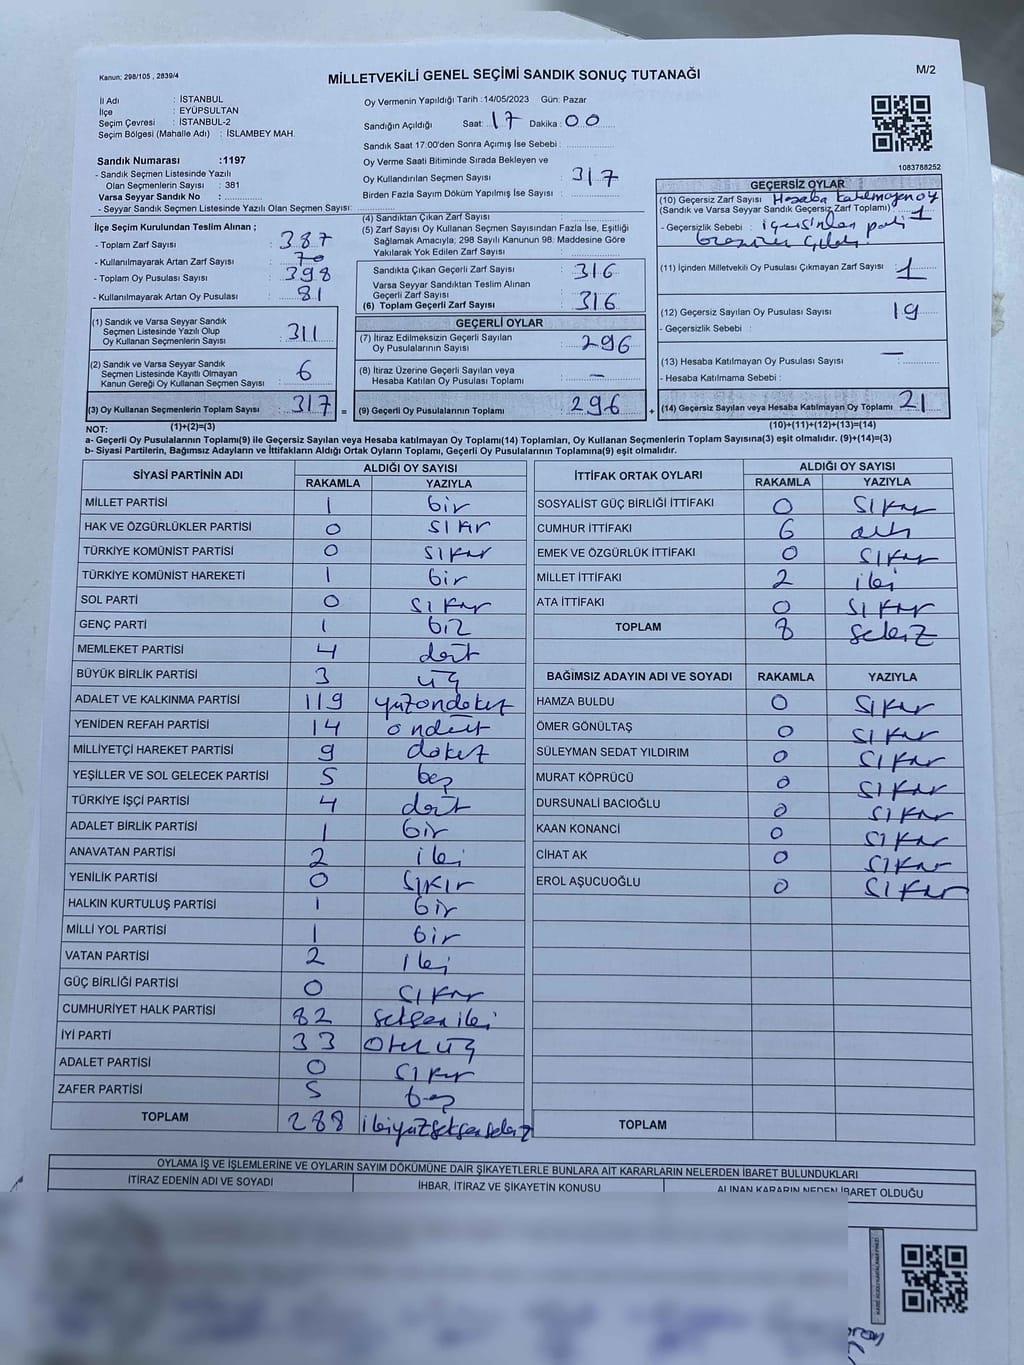 Kanun; 298/105 , 2839/4
MİLLETVEKİLİ GENEL SEÇİMİ SANDIK SONUÇ TUTANAĞI
M/2
İl Adı : İSTANBUL
İlçe : EYÜPSULTAN
Seçim Çevresi : İSTANBUL-2
Seçim Bölgesi (Mahalle Adı) : İSLAMBEY MAH.
Sandık Numarası :1197
- Sandık Seçmen Listesinde Yazılı
Olan Seçmenlerin Sayısı : 381
Varsa Seyyar Sandık No :
- Seyyar Sandık Seçmen Listesinde Yazılı Olan Seçmen Sayısı:
Oy Vermenin Yapıldığı Tarih :14/05/2023 Gün: Pazar
Sandığın Açıldığı Saat: 17 Dakika : 00
Sandık Saat 17:00'den Sonra Açımış İse Sebebi :
Oy Verme Saati Bitiminde Sırada Bekleyen ve
Oy Kullandırılan Seçmen Sayısı : 317
Birden Fazla Sayım Döküm Yapılmış İse Sayısı :
1083788252
İlçe Seçim Kurulundan Teslim Alınan ;
- Toplam Zarf Sayısı : 387
- Kullanılmayarak Artan Zarf Sayısı : 70
- Toplam Oy Pusulası Sayısı : 398
- Kullanılmayarak Artan Oy Pusulası : 81
(1) Sandık ve Varsa Seyyar Sandık
Seçmen Listesinde Yazılı Olup
Oy Kullanan Seçmenlerin Sayısı : 311
(2) Sandık ve Varsa Seyyar Sandık
Seçmen Listesinde Kayıtlı Olmayan
Kanun Gereği Oy Kullanan Seçmen Sayısı : 6
(3) Oy Kullanan Seçmenlerin Toplam Sayısı : 317
(1)+(2)=(3)
(4) Sandıktan Çıkan Zarf Sayısı :
(5) Zarf Sayısı Oy Kullanan Seçmen Sayısından Fazla İse, Eşitliği
Sağlamak Amacıyla; 298 Sayılı Kanunun 98. Maddesine Göre
Yakılarak Yok Edilen Zarf Sayısı :
Sandıkta Çıkan Geçerli Zarf Sayısı : 316
Varsa Seyyar Sandıktan Teslim Alınan
Geçerli Zarf Sayısı :
(6) Toplam Geçerli Zarf Sayısı : 316
GEÇERLİ OYLAR
(7) İtiraz Edilmeksizin Geçerli Sayılan
Oy Pusulalarının Sayısı : 296
(8) İtiraz Üzerine Geçerli Sayılan veya
Hesaba Katılan Oy Pusulası Toplamı : —
= (9) Geçerli Oy Pusulalarının Toplamı : 296
GEÇERSİZ OYLAR
(10) Geçersiz Zarf Sayısı Hesaba katılmayan oy
(Sandık ve Varsa Seyyar Sandık Geçersiz Zarf Toplamı) : 1
- Geçersizlik Sebebi :
(11) İçinden Milletvekili Oy Pusulası Çıkmayan Zarf Sayısı : 1
(12) Geçersiz Sayılan Oy Pusulası Sayısı : 19
- Geçersizlik Sebebi :
(13) Hesaba Katılmayan Oy Pusulası Sayısı : —
- Hesaba Katılmama Sebebi :
+ (14) Geçersiz Sayılan veya Hesaba Katılmayan Oy Toplamı : 21
(10)+(11)+(12)+(13)=(14)
NOT:
a- Geçerli Oy Pusulalarının Toplamı(9) ile Geçersiz Sayılan veya Hesaba katılmayan Oy Toplamı(14) Toplamları, Oy Kullanan Seçmenlerin Toplam Sayısına(3) eşit olmalıdır. (9)+(14)=(3)
b- Siyasi Partilerin, Bağımsız Adayların ve İttifakların Aldığı Ortak Oyların Toplamı, Geçerli Oy Pusulalarının Toplamına(9) eşit olmalıdır.
SİYASİ PARTİNİN ADI ALDIĞI OY SAYISI
RAKAMLA YAZIYLA
MİLLET PARTİSİ 1 bir
HAK VE ÖZGÜRLÜKLER PARTİSİ 0 sıfır
TÜRKİYE KOMÜNİST PARTİSİ 0 sıfır
TÜRKİYE KOMÜNİST HAREKETİ 1 bir
SOL PARTİ 0 sıfır
GENÇ PARTİ 1 bir
MEMLEKET PARTİSİ 4 dört
BÜYÜK BİRLİK PARTİSİ 3 üç
ADALET VE KALKINMA PARTİSİ 119 yüzondokuz
YENİDEN REFAH PARTİSİ 14 ondört
MİLLİYETÇİ HAREKET PARTİSİ 9 dokuz
YEŞİLLER VE SOL GELECEK PARTİSİ 5 beş
TÜRKİYE İŞÇİ PARTİSİ 4 dört
ADALET BİRLİK PARTİSİ 1 bir
ANAVATAN PARTİSİ 2 iki
YENİLİK PARTİSİ 0 sıfır
HALKIN KURTULUŞ PARTİSİ 1 bir
MİLLİ YOL PARTİSİ 1 bir
VATAN PARTİSİ 2 iki
GÜÇ BİRLİĞİ PARTİSİ 0 sıfır
CUMHURİYET HALK PARTİSİ 82 seksen iki
İYİ PARTİ 33 otuz üç
ADALET PARTİSİ 0 sıfır
ZAFER PARTİSİ 5 beş
TOPLAM 288 ikiyüzseksensekiz
İTTİFAK ORTAK OYLARI ALDIĞI OY SAYISI
RAKAMLA YAZIYLA
SOSYALİST GÜÇ BİRLİĞİ İTTİFAKI 0 sıfır
CUMHUR İTTİFAKI 6 altı
EMEK VE ÖZGÜRLÜK İTTİFAKI 0 sıfır
MİLLET İTTİFAKI 2 iki
ATA İTTİFAKI 0 sıfır
TOPLAM 8 sekiz
BAĞIMSIZ ADAYIN ADI VE SOYADI RAKAMLA YAZIYLA
HAMZA BULDU 0 sıfır
ÖMER GÖNÜLTAŞ 0 sıfır
SÜLEYMAN SEDAT YILDIRIM 0 sıfır
MURAT KÖPRÜCÜ 0 sıfır
DURSUNALİ BACIOĞLU 0 sıfır
KAAN KONANCİ 0 sıfır
CİHAT AK 0 sıfır
EROL AŞUCUOĞLU 0 sıfır
TOPLAM
OYLAMA İŞ VE İŞLEMLERİNE VE OYLARIN SAYIM DÖKÜMÜNE DAİR ŞİKAYETLERLE BUNLARA AİT KARARLARIN NELERDEN İBARET BULUNDUKLARI
İTİRAZ EDENİN ADI VE SOYADI İHBAR, İTİRAZ VE ŞİKAYETİN KONUSU ALINAN KARARIN NEDEN İBARET OLDUĞU